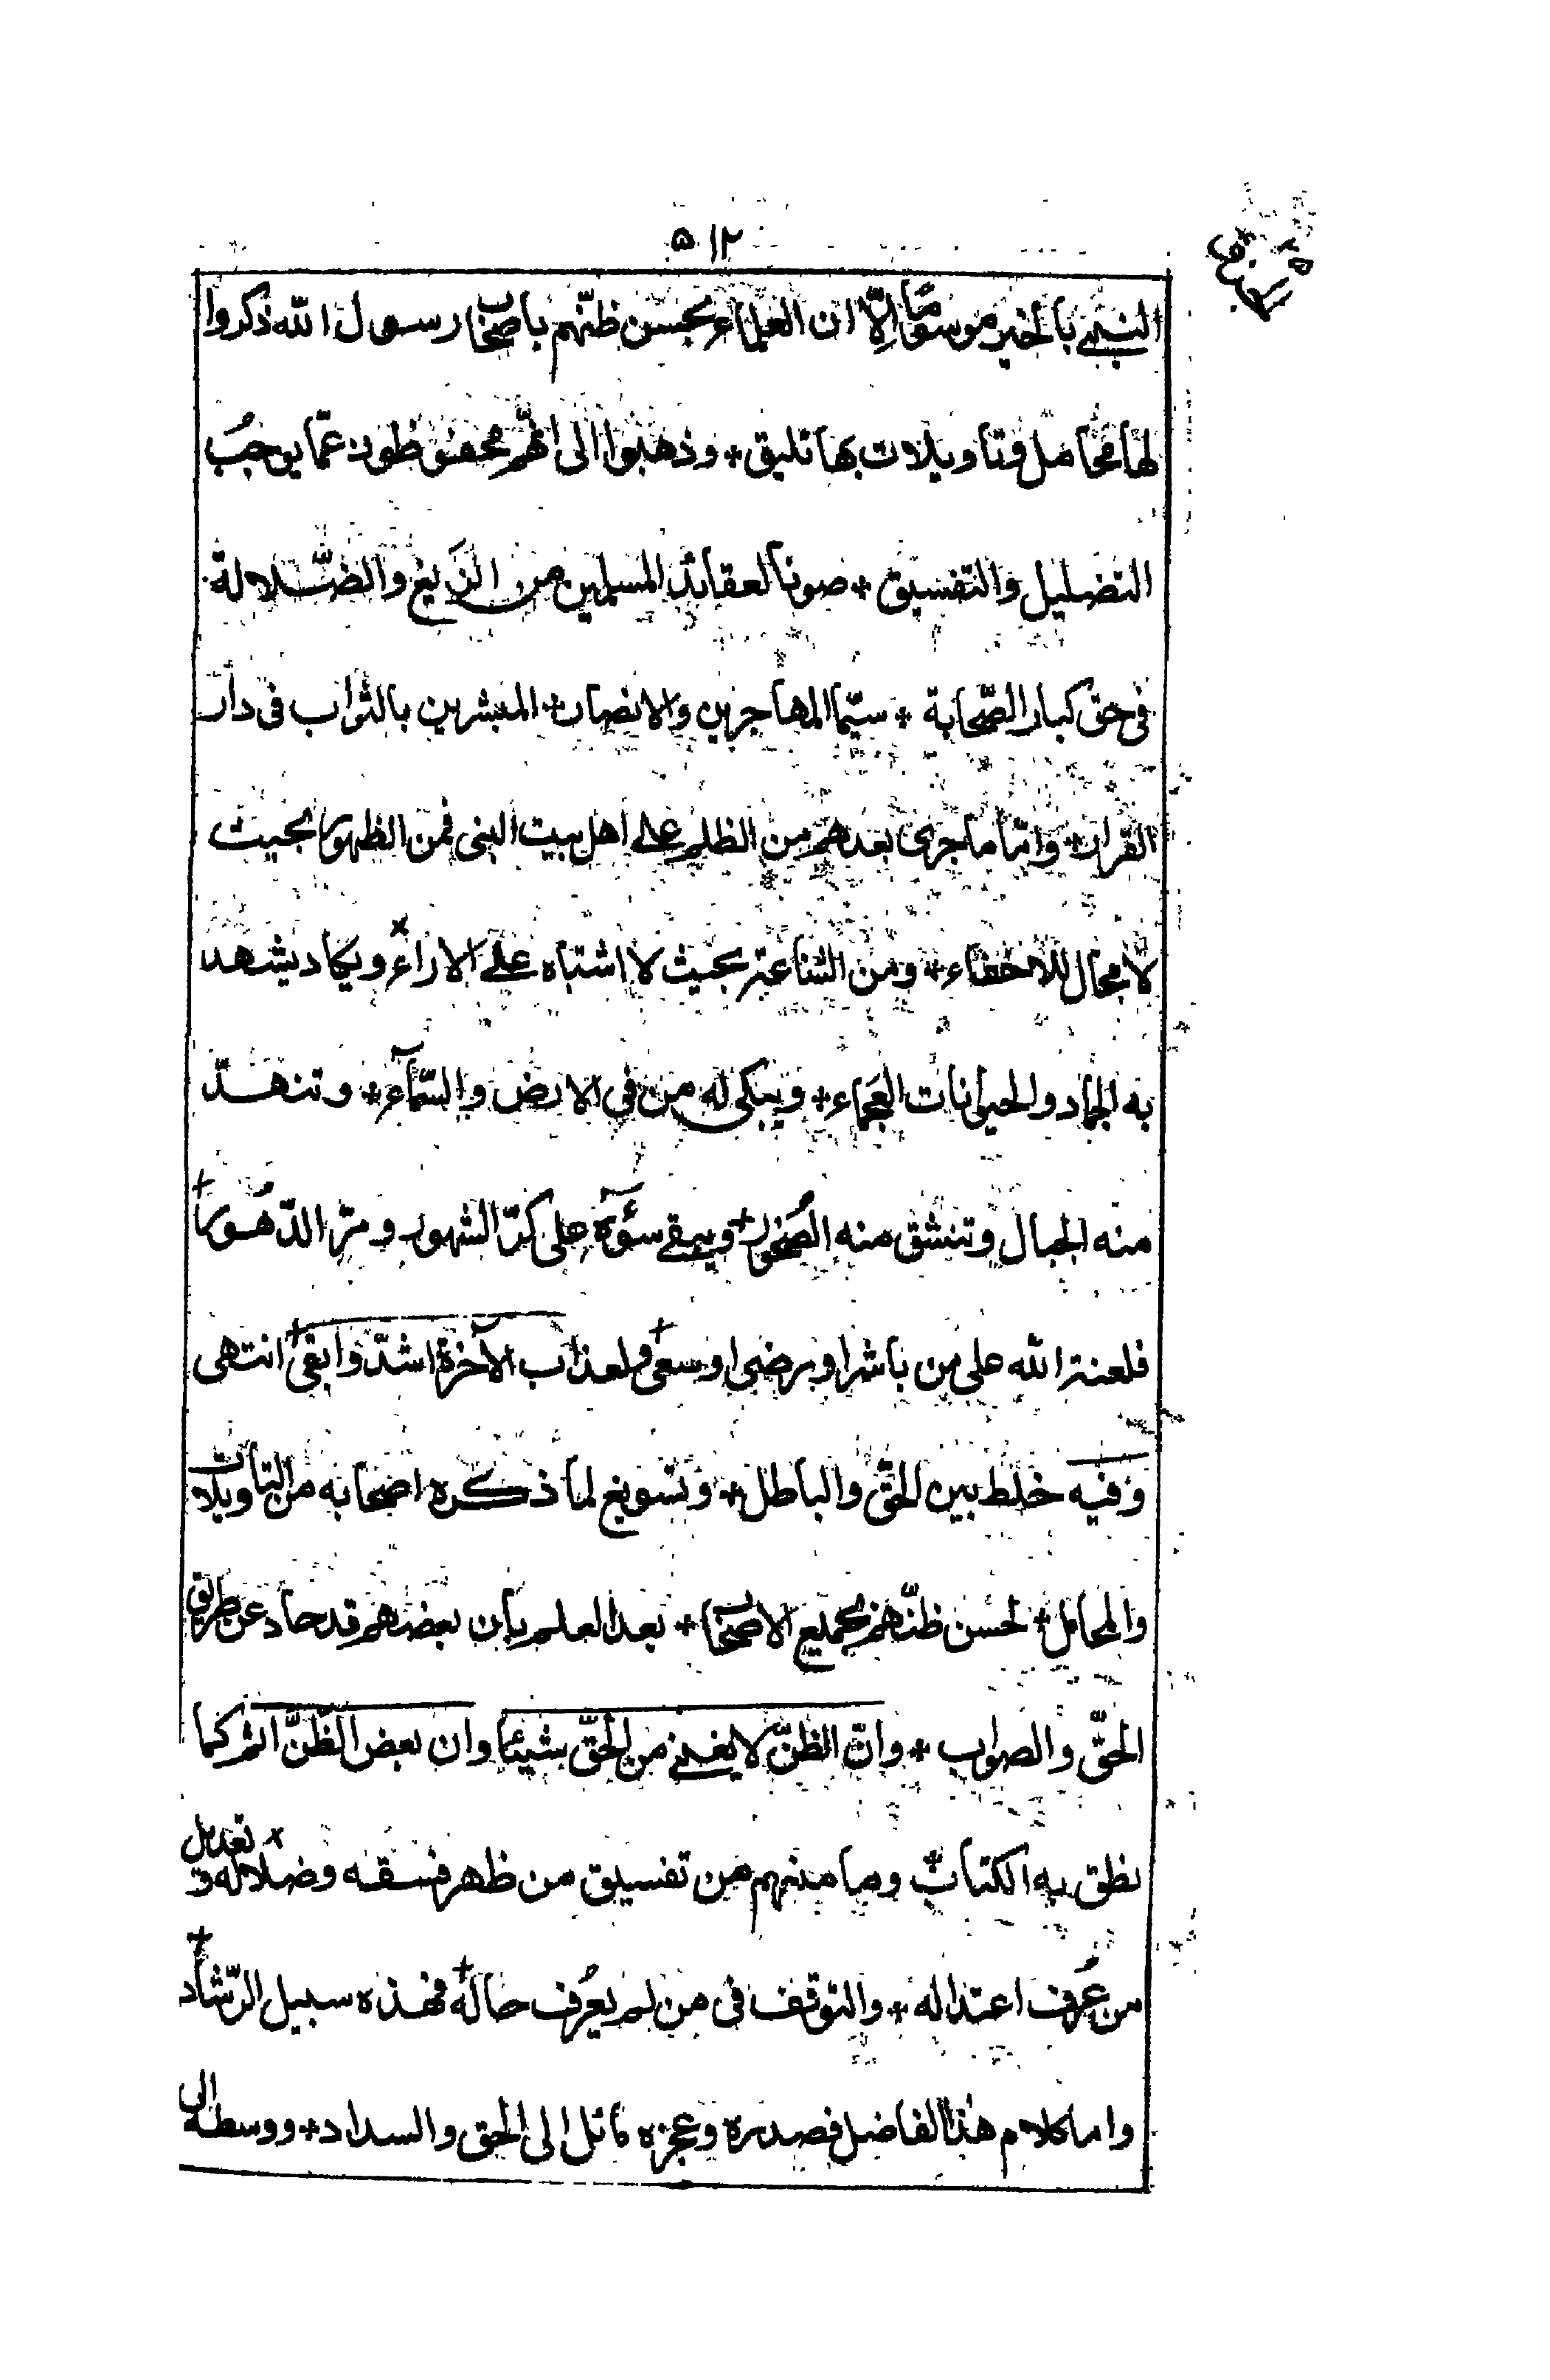 ۵۱۲
النبی بالخیر موسوما الّا ان العلماء بحسن ظنّهم باصحاب رسول الله ذکروا
لها محامل وتاویلات بها تلیق + وذهبوا الی انّهم محفوظون عمّا یوجب
التضلیل والتفسیق + صونا لعقائد المسلمین من الزیغ والضّلالة
فی حق کبار الصّحابة + سیّما المهاجرین والانصار + المبشرین بالثواب فی دار
القرار + وامّا ما جری بعدهم من الظلم علے اهل بیت النبی فمن الظهور بحیث
لا مجال للاخفاء + ومن الشناعة بحیث لا اشتباه علے الاراء + ویکاد یشهد
به الجماد والحیوانات العجماء + ویبکی له من فی الارض والسّمآء + وتنهدّ
منه الجبال وتنشق منه الصُخور + ویبقے سوٓءه علی کرّ الشهور ومرّ الدّهُور +
فلعنة الله علی من باشر او رضی او سعی + ولعذاب الآخرة اشدّ وابقی + انتهی
وفیه خلط بین الحقّ والباطل + وتسویغ لما ذکره اصحابه من التاویلات
والمحامل + لحسن ظنّهم بجمیع الاصحاب + بعد العلم بان بعضهم قد حاد عن طریق
الحقّ والصواب + وانّ الظنّ لا یغنے من الحقّ شیئا وان بعض الظّنّ اثم کما
نطق به الکتاب + وما منهم من تفسیق من ظهر فسقه وضلاله + وتعدیل
من عُرف اعتداله + والتوقف فی من لم یعُرف حالهُ + فهذه سبیل الرّشاد +
واما کلام هذا الفاضل فصدره وعجزه مائل الی الحق والسداد + ووسطه الی